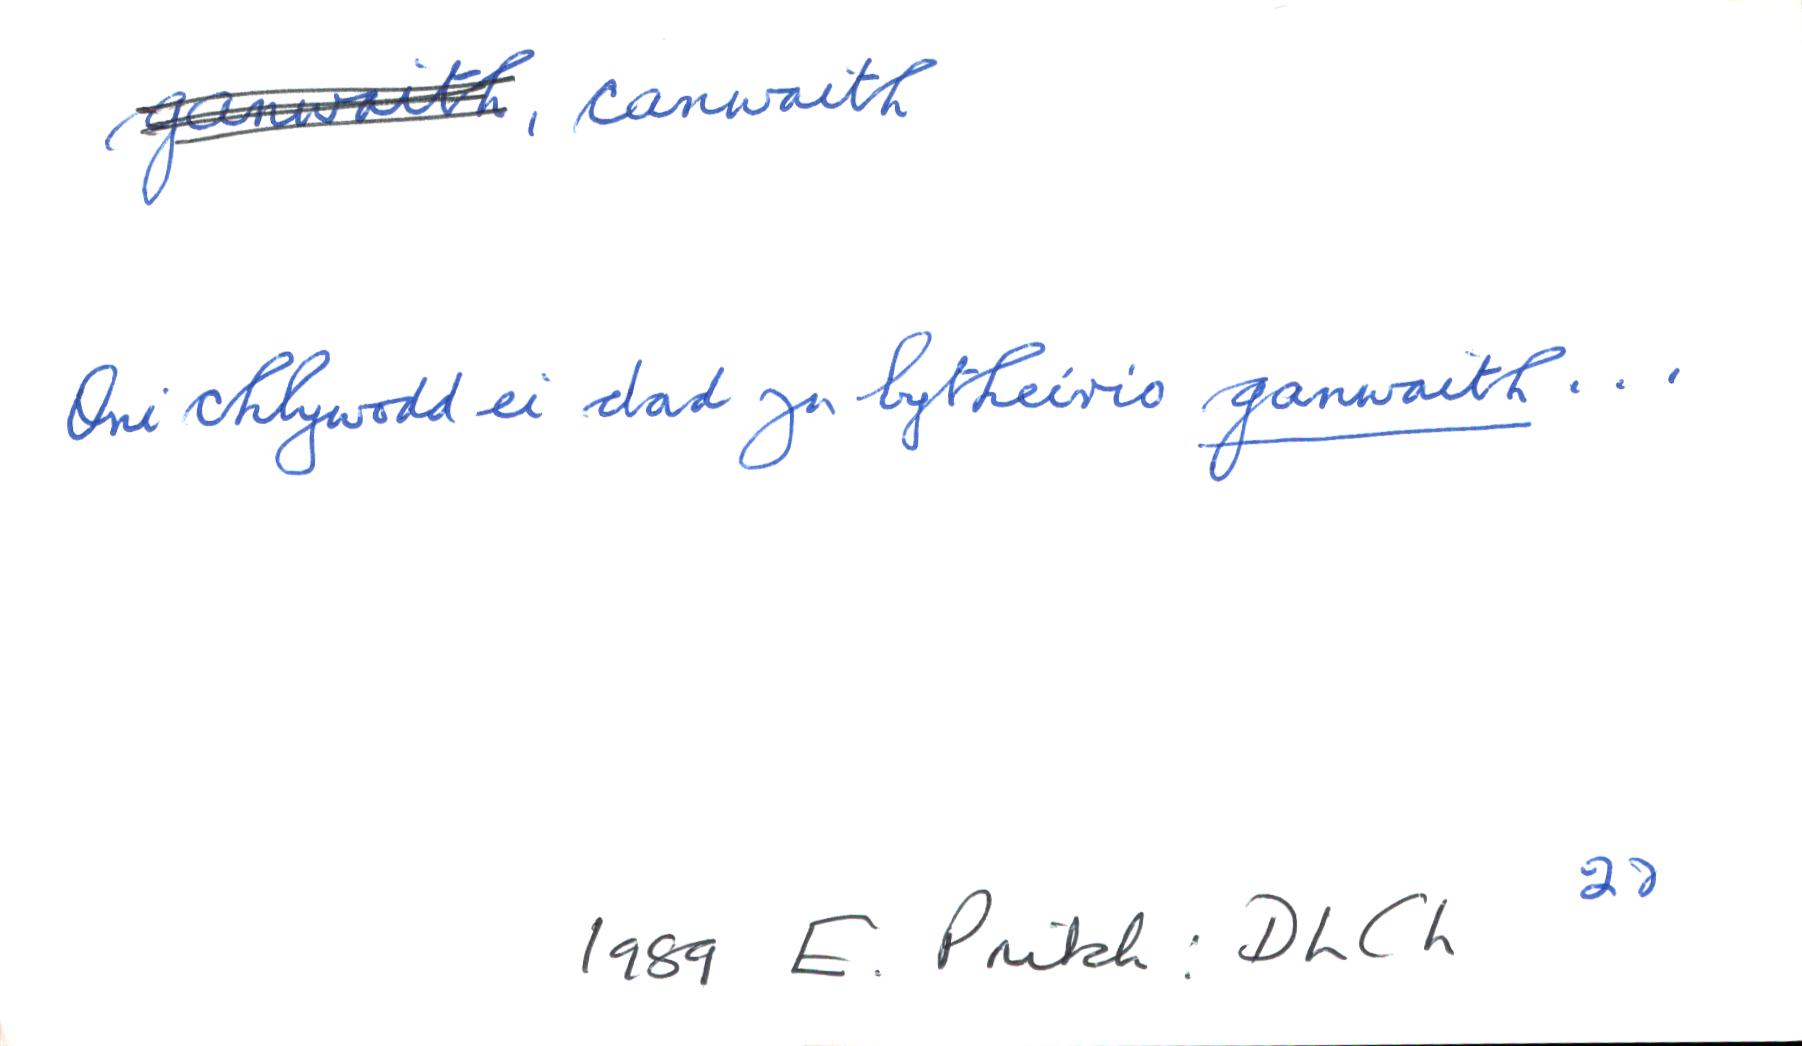 ganwaith, canwaith
Oni chlywodd ei dad yn bytheirio ganwaith...
1989 E. Pritch: DLCh